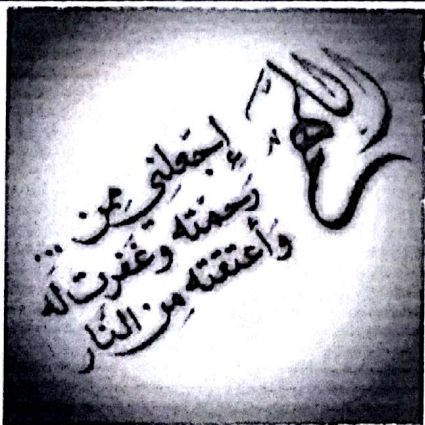 اللهم
إجعلني مِمن ...
رَحمته وغَفرت لَه
وَأعتقته مِن النَار